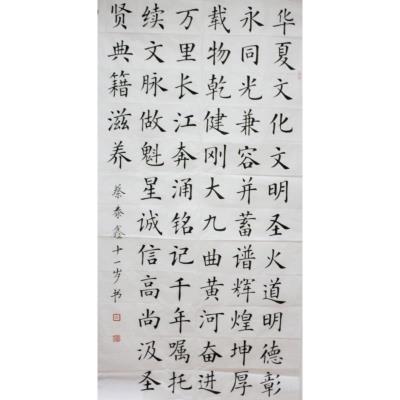 华夏文化文明圣火道明德彰
永同光兼容并蓄谱辉煌坤厚
载物乾健刚大九曲黄河奋进
万里长江奔涌铭记千年嘱托
续文脉做魁星诚信高尚汲圣
贤典籍滋养
蔡泰鑫十一岁书